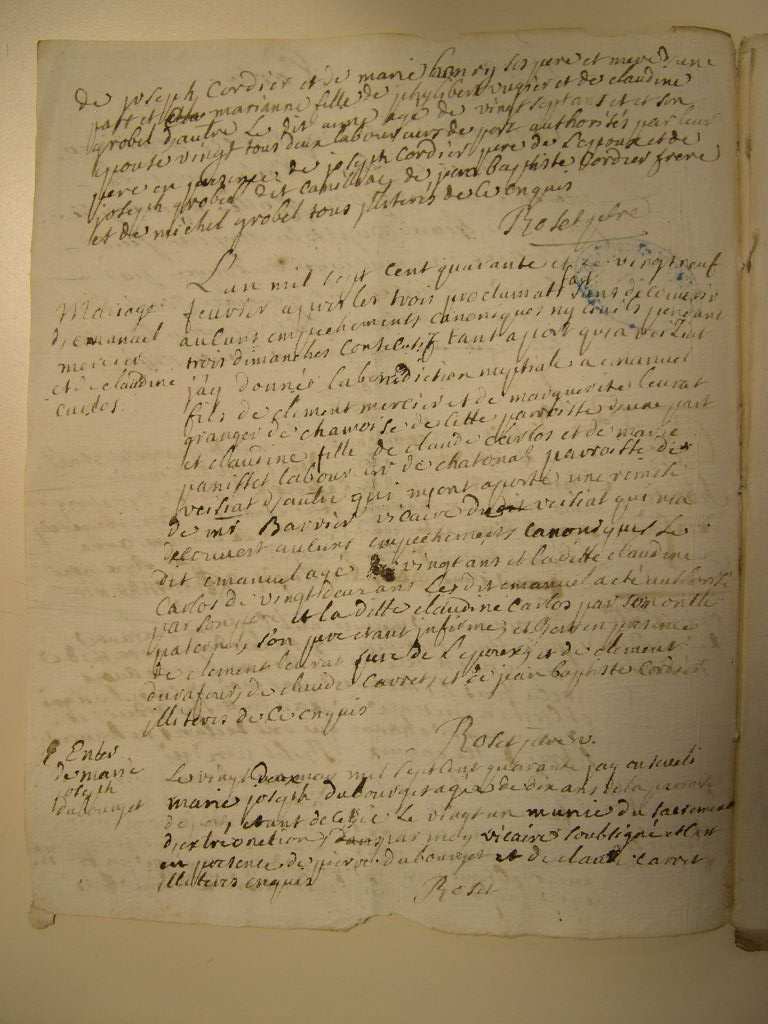 de joseph Cordier et de marie henry ses pere et mere d'une
part et marianne fille de phylibert vugier et de claudine
grobel d'autre le dit aime agé de vingt sept ans et son
epouse vingt tous deux laboureurs de port authorités par leur
pere en presence de joseph Cordier pere de l'epoux et de
joseph grobel dit Camillac de jean baptiste Cordier frere
et de michel grobel tous illiterés de ce enquis
Roset ptre
Mariage
d'emanuel
mercier
et de claudine
carlos.
L'an mil sept cent quarante et le vingt neuf
fevrier apres les trois proclamations sans decouvrir
aucuns empechements canoniques ny civils pendant
trois dimanches consecutif tant a port qu'a veisiat
j'ay donnée la benediction nuptiale a emanuel
fils de clement mercier et de marguerite leurat
granger de chamoise de cette parroisse d'une part
et claudine fille de claude carlos et de marie
panisset laboureur de chatonas parroisse de
veisiat d'autre qui m'ont aporté une remise
de mr Barrier vicaire du dit veisiat qui n'a
decouvert aucuns empechements canoniques le
dit emanuel agé de vingt ans et la ditte claudine
Carlos de vingt deux ans le dit emanuel a été authorisé
par son pere et la ditte claudine Carlos par son oncle
paternel son pere etant infirme, et en presence
de clement leurat de l'epoux et de clement
durafour, de claude Carret, et de jean baptiste Cordier
illiteres de ce enquis
Roset ptre v.
Enter
de marie
joseph
dubourget
Le vingt deux mars mil sept cent quarante j'ay enseveli
marie joseph dubourget agée de dix ans de la parroisse
de port, etant decedée le vingt un munie du sacrement
d'extreonction par moy vicaire soubsigné et c'est
en presence de pierre dubourget et de claude Carret
illiteres enquis
Roset